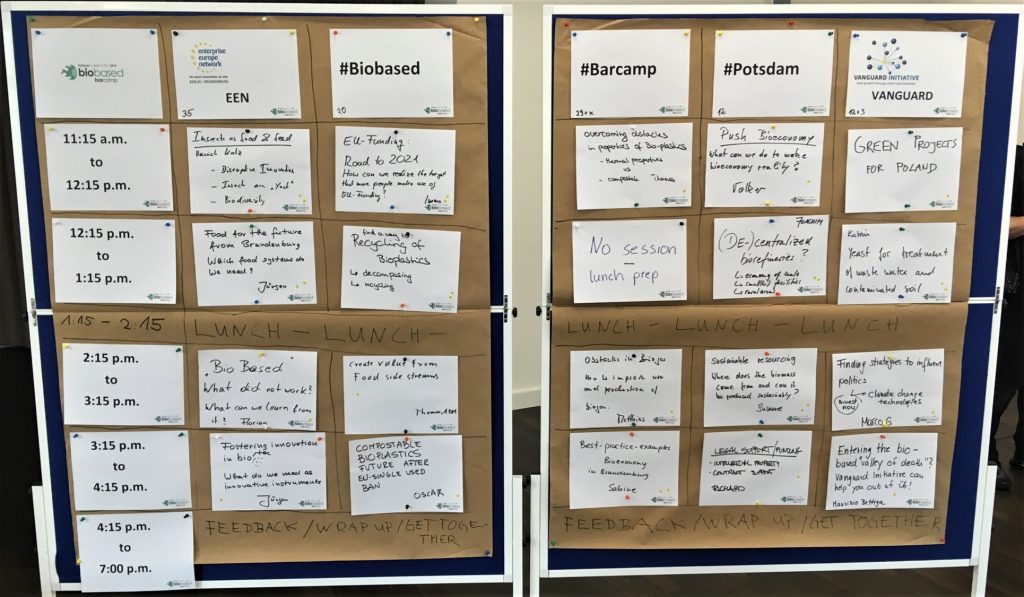 biobased
barcamp
enterprise
europe
network
EEN
35
#Biobased
20
11:15 a.m.
to
12:15 p.m.
Insects as food & feed
- Disruptive Innovation
- Insect an "Yuck"
- Biodiversity
EU-Funding:
Road to 2021
How can we realize the target
that more people make use of
EU-Funding?
12:15 p.m.
to
1:15 p.m.
Food for the future
from Brandenburg
Which food systems do
we need?
Jürgen
find a way to
Recycling of
Bioplastics
↳ decomposing
↳ recycling
1:15 - 2:15
LUNCH - LUNCH -
2:15 p.m.
to
3:15 p.m.
Bio Based
What did not work?
What can we learn from
it? Florian
Create value from
Food side streams
Thomas, ATB
3:15 p.m.
to
4:15 p.m.
Fostering innovation
in bio
What do we need as
innovative instruments
Jürgen
COMPOSTABLE
BIOPLASTICS
FUTURE AFTER
EU-SINGLE USED
BAN
OSCAR
4:15 p.m.
to
7:00 p.m.
FEEDBACK / WRAP UP / GET TOGE-
THER
#Barcamp
#Potsdam
12
VANGUARD INITIATIVE
VANGUARD
Overcoming obstacles
in properties of Bio-plastics
- thermal properties
vs
- compostable
Push Bioeconomy
What can we do to make
bioeconomy reality?
Volker
GREEN PROJECTS
FOR POLAND
No session
-
lunch prep
JOACHIM
(DE-)centralized
biorefineries?
↳ economy of scale
↳ small(er) facilities
↳ rural areas
Katrin
Yeast for treatment
of waste water and
contaminated soil
LUNCH - LUNCH - LUNCH
Obstacles in Biogas
How to improve use
and production of
biogas.
Matthias
Sustainable resourcing
Where does the biomass
come from and can it
be produced sustainably?
Susanne
Finding strategies to influent
politics
↳ climate change
technologies
Invest
now
Marco G
Best-practice-examples
Bioeconomy
in Brandenburg
Sabine
LEGAL SUPPORT/FUNDING
- INTELLECTUAL PROPERTY
- CONTRACT SUPPORT
RICHARD
Entering the bio-
based valley of death"?
Vanguard Initiative can
help you out of it!
Maurizio Bettiga
FEEDBACK / WRAP UP / GET TOGETHER